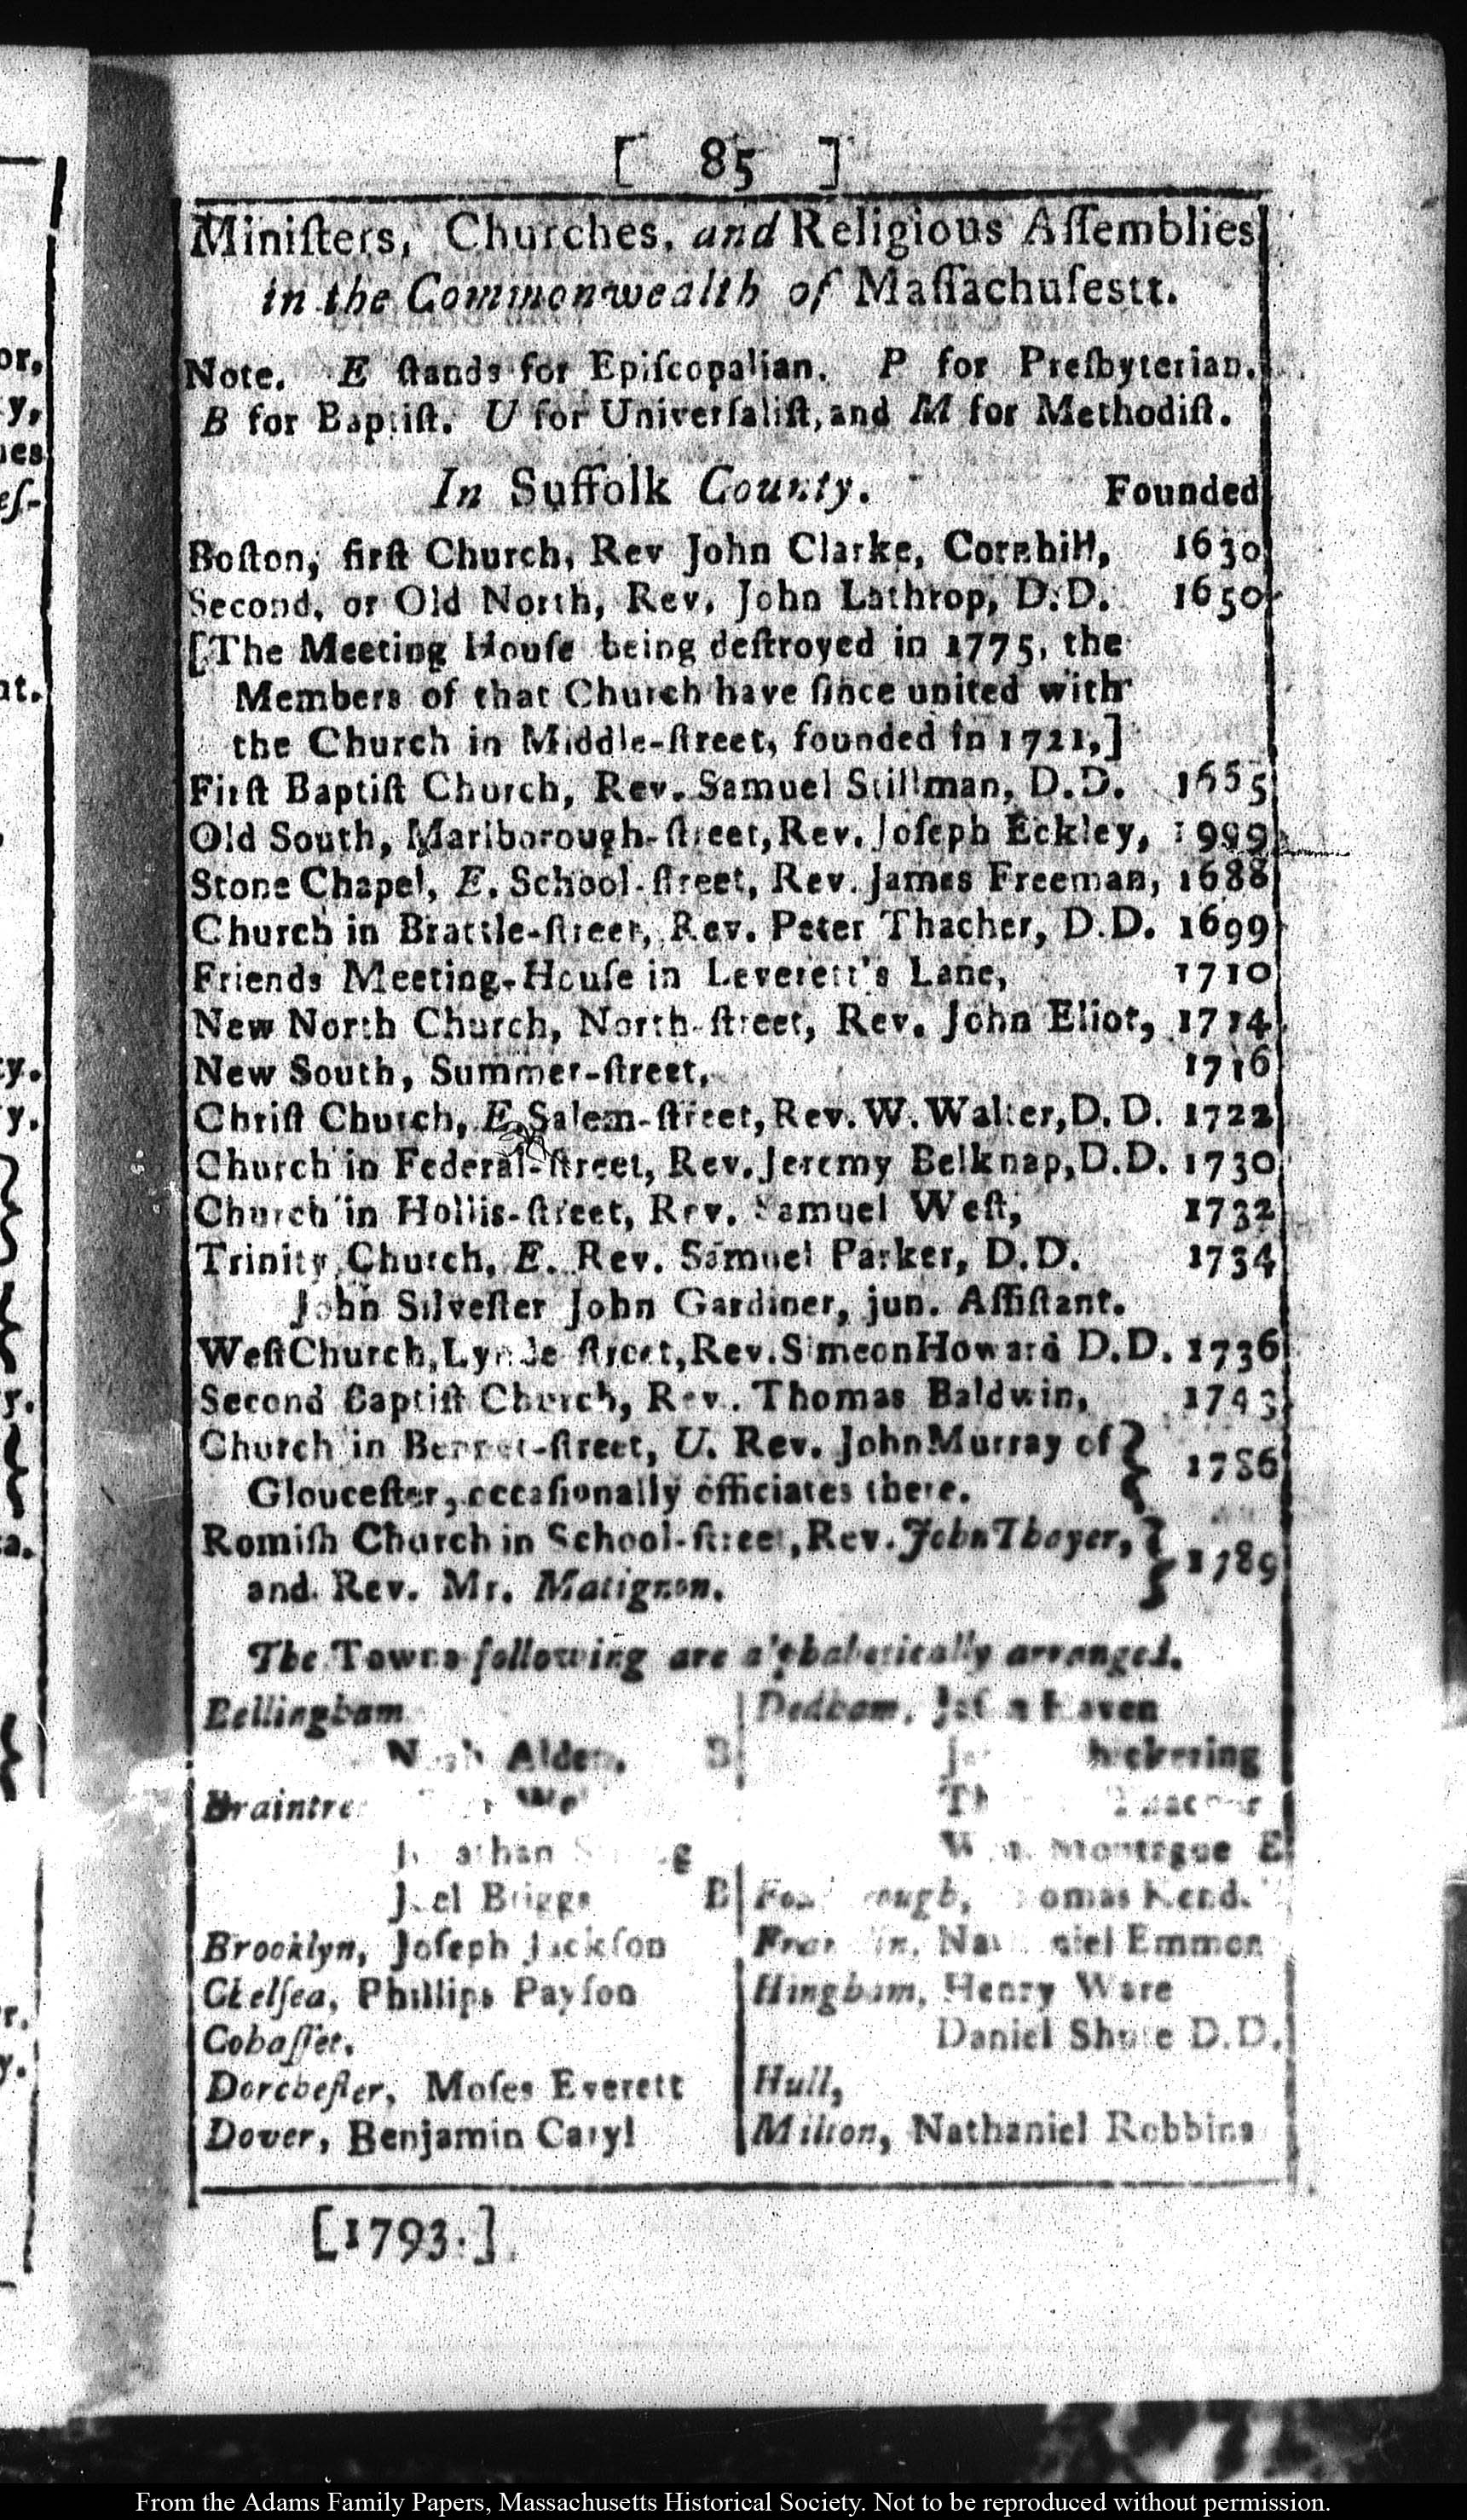 [ 85 ]
Miniſters, Churches, and Religious Aſſemblies
in the Commonwealth of Maſſachuſestt.
Note. E ſtands for Epiſcopalian. P for Preſbyterian.
B for Baptiſt. U for Univerſaliſt, and M for Methodiſt.
In Suffolk County. Founded
Boſton, firſt Church, Rev John Clarke, Cornhill, 1630
Second, or Old North, Rev. John Lathrop, D.D. 1650
[The Meeting Houſe being deſtroyed in 1775, the
Members of that Church have ſince united with
the Church in Middle-ſtreet, founded in 1721,]
Firſt Baptiſt Church, Rev. Samuel Stillman, D.D. 1665
Old South, Marlborough-ſtreet, Rev. Joſeph Eckley, 1999
Stone Chapel, E. School-ſtreet, Rev. James Freeman, 1688
Church in Brattle-ſtreet, Rev. Peter Thacher, D.D. 1699
Friends Meeting-Houſe in Leverett's Lane, 1710
New North Church, North-ſtreet, Rev. John Eliot, 1714
New South, Summer-ſtreet, 1716
Chriſt Church, E. Salem-ſtreet, Rev. W. Walter, D.D. 1722
Church in Federal-ſtreet, Rev. Jeremy Belknap, D.D. 1730
Church in Hollis-ſtreet, Rev. Samuel Weſt, 1732
Trinity Church, E. Rev. Samuel Parker, D.D. 1734
John Silveſter John Gardiner, jun. Aſſiſtant.
Weſt Church, Lynde ſtreet, Rev. Simeon Howard D.D. 1736
Second Baptiſt Church, Rev. Thomas Baldwin, 1743
Church in Bennet-ſtreet, U. Rev. John Murray of
Glouceſter, occaſionally officiates there. 1786
Romiſh Church in School-ſtreet, Rev. John Thayer,
and Rev. Mr. Matignon. 1789
The Towns following are alphabetically arranged.
Bellingham
Noah Alden. B
Braintre
Joel Briggs B
Brooklyn, Joſeph Jackſon
Chelſea, Phillips Payſon
Cohaſſet,
Dorcheſter, Moſes Everett
Dover, Benjamin Caryl
Dedham, Jaſon Haven
Montague E
Nathaniel Emmon
Hingham, Henry Ware
Daniel Shute D.D.
Hull,
Milton, Nathaniel Robbins
[1793.]
or,
y,
nes
eſ-
nt.
y.
y.
r.
a.
r.
y.
From the Adams Family Papers, Massachusetts Historical Society. Not to be reproduced without permission.